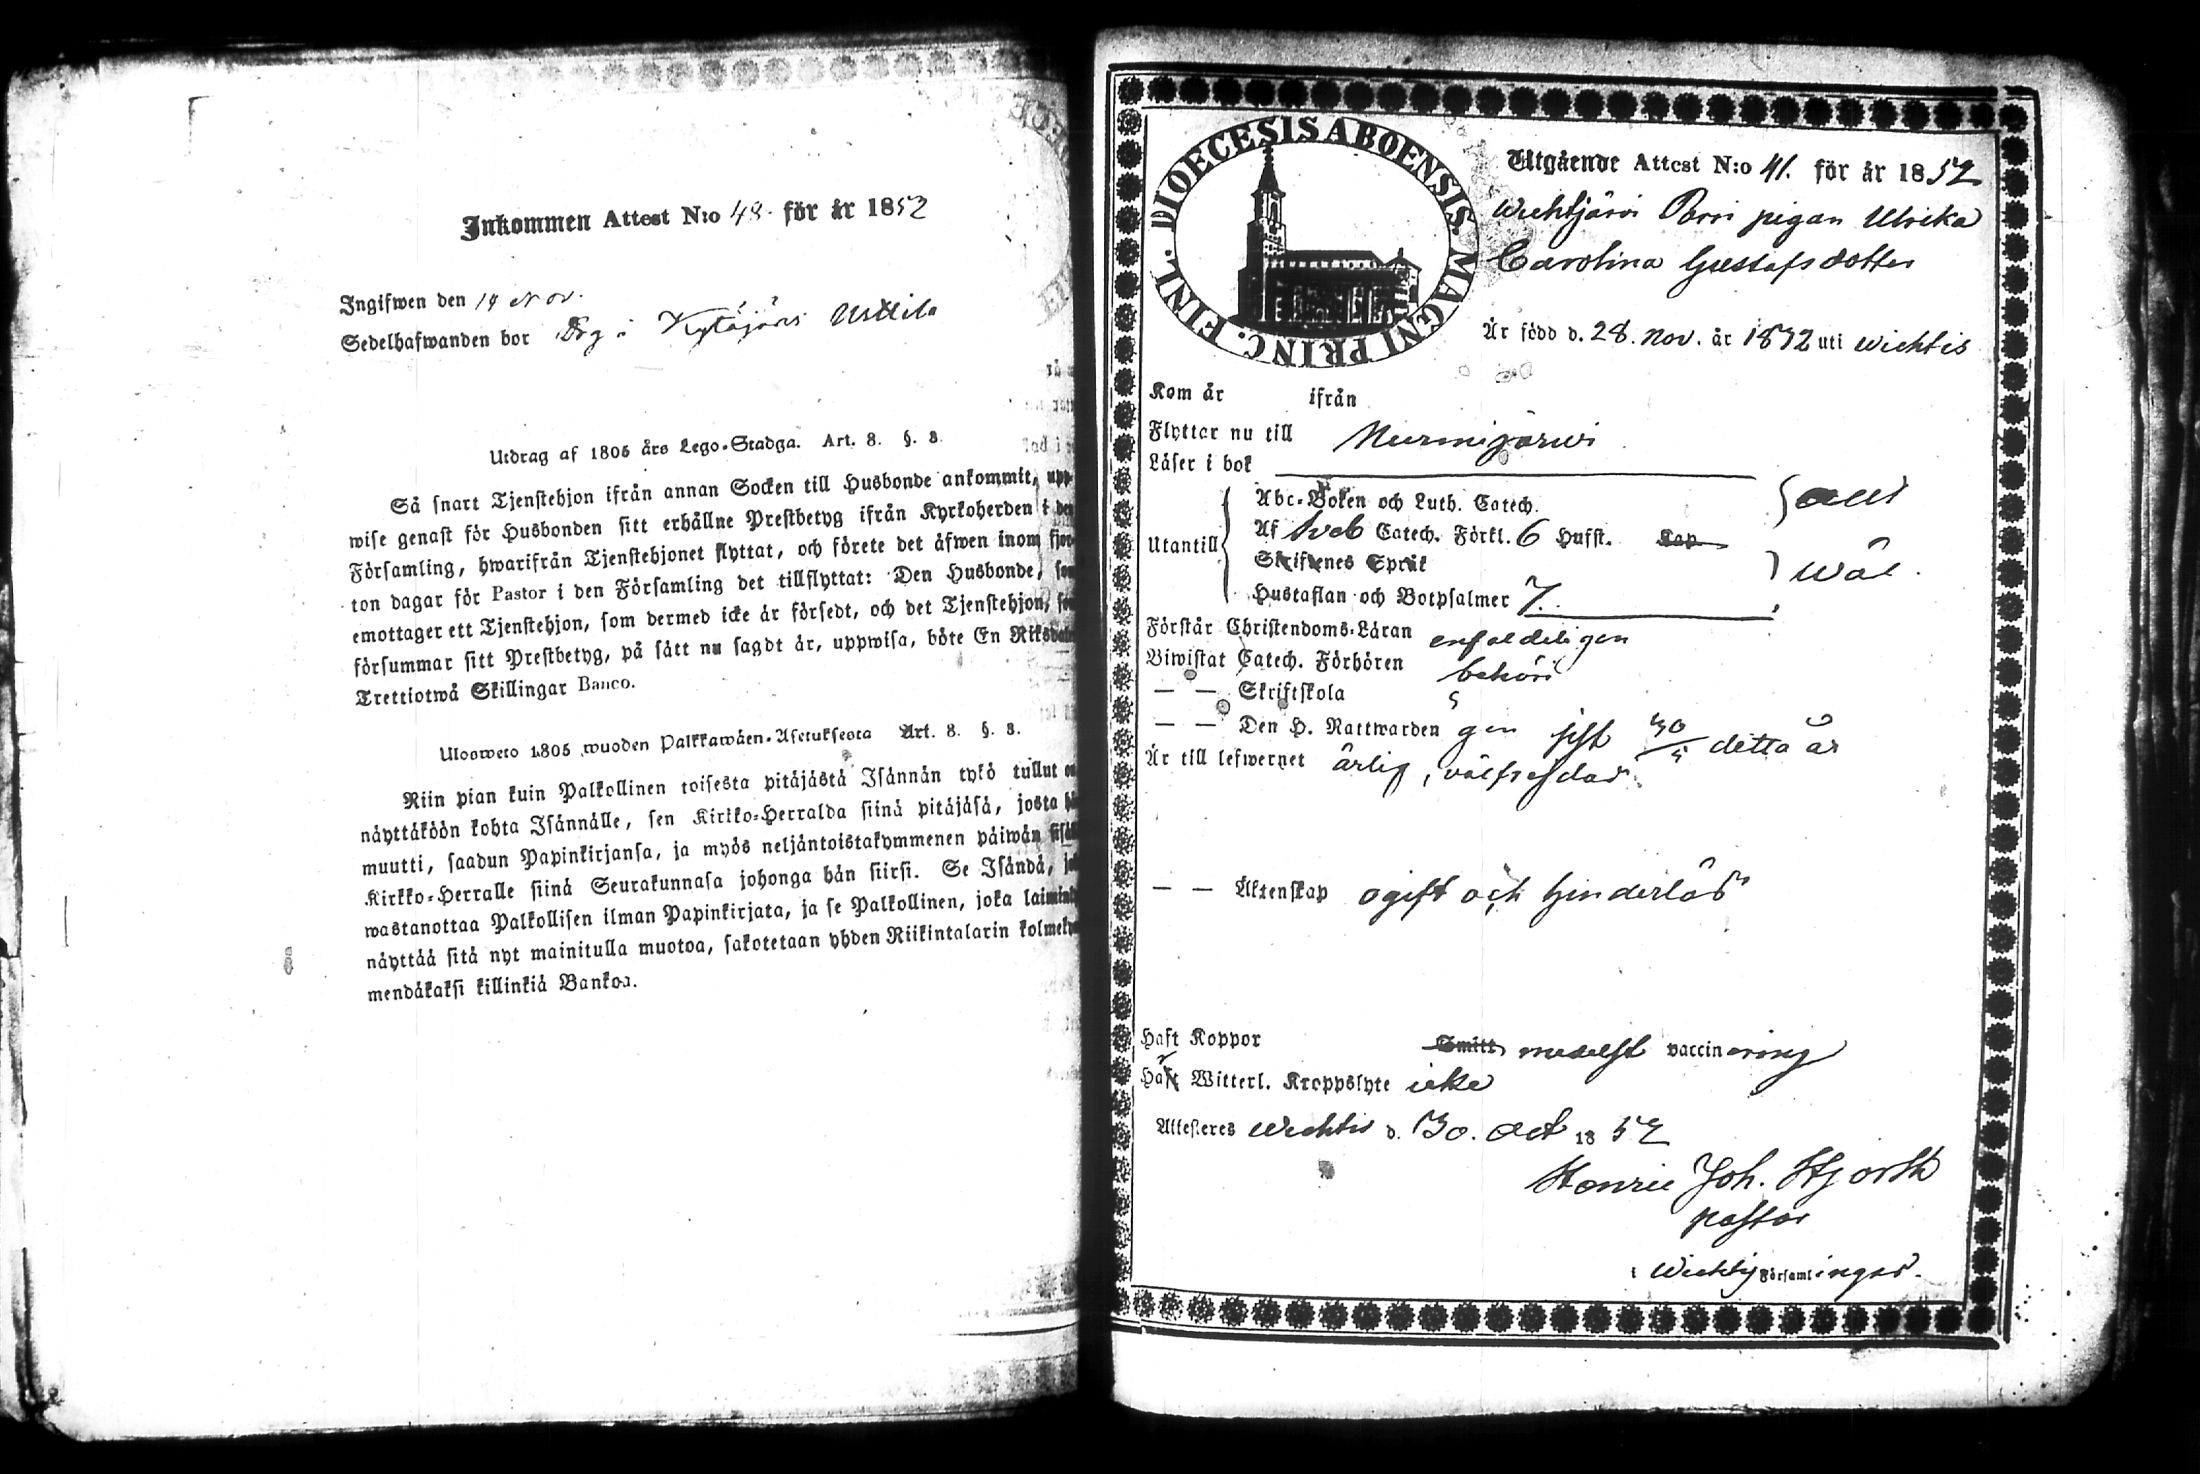 Inkommen Attest N:o 48. för år 1852
Ingifwen den 14 Nov.
Sedelhafwanden bor Drg i Kytäjärvi Uttila
Utdrag af 1805 års Lego-Stadga. Art. 8. §. 3.
Så snart Tjenstehjon ifrån annan Socken till Husbonde ankommit, upp-
wise genast för Husbonden sitt erhållne Prestbetyg ifrån Kyrkoherden i den
Församling, hwarifrån Tjenstehjonet flyttat, och förete det äfwen inom fjor-
ton dagar för Pastor i den Församling det tillflyttat: Den Husbonde, som
emottager ett Tjenstehjon, som dermed icke är försedt, och det Tjenstehjon, som
försummar sitt Prestbetyg, på sätt nu sagdt är, uppwisa, böte En Riksdaler
Trettiotwå Skillingar Banco.
Ulosweto 1805 wuoden Palkkawäen-Asetuksesta Art. 8. §. 3.
Niin pian kuin Palkollinen toisesta pitäjästä Isännän tykö tullut on
näyttäköön kohta Isännälle, sen Kirkko-Herralda siinä pitäjäsä, josta hän
muutti, saadun Papinkirjansa, ja myös neljäntoistakymmenen päiwän sisällä
Kirkko-Herralle siinä Seurakunnasa johonga hän siirsi. Se Isändä, joka
wastanottaa Palkollisen ilman Papinkirjata, ja se Palkollinen, joka laiminlyö
näyttää sitä nyt mainitulla muotoa, sakotetaan yhden Riikintalarin kolmekym-
mendäkaksi killinkiä Bankoa.
DIOECESIS ABOENSIS. MAGNI PRINC. FINL.
Utgående Attest N:o 41. för år 1852
Wichtjärvi Porri pigan Ulrika
Carolina Gustafsdotter
Är född d. 28. Nov. år 1832 uti Wichtis
Kom år ifrån
Flyttar nu till Nurmijärvi
Läser i bok
Utantill
Abc-Boken och Luth. Catech.
Af Sveb Catech. Förkl. 6 Hufst. Kap
Skriftenes Språk
Hustaflan och Botpsalmer 7.
allt
wäl.
Förstår Christendoms-Läran enfaldeligen
Biwistat Catech. Förhören behöri
— — Skriftskola
— — Den H. Nattwarden gen sist 30/5 detta år
Är till lefwernet ärlig, välfrejdad
— — Äktenskap ogift och hinderlös
Haft Koppor Smitt medelst vaccinering
Har Witterl. Kroppslyte icke
Attesteres Wichtis d. 30. Oct 1852
Henric Joh. Hjorth
pastor
i Wichtis Församlingar.